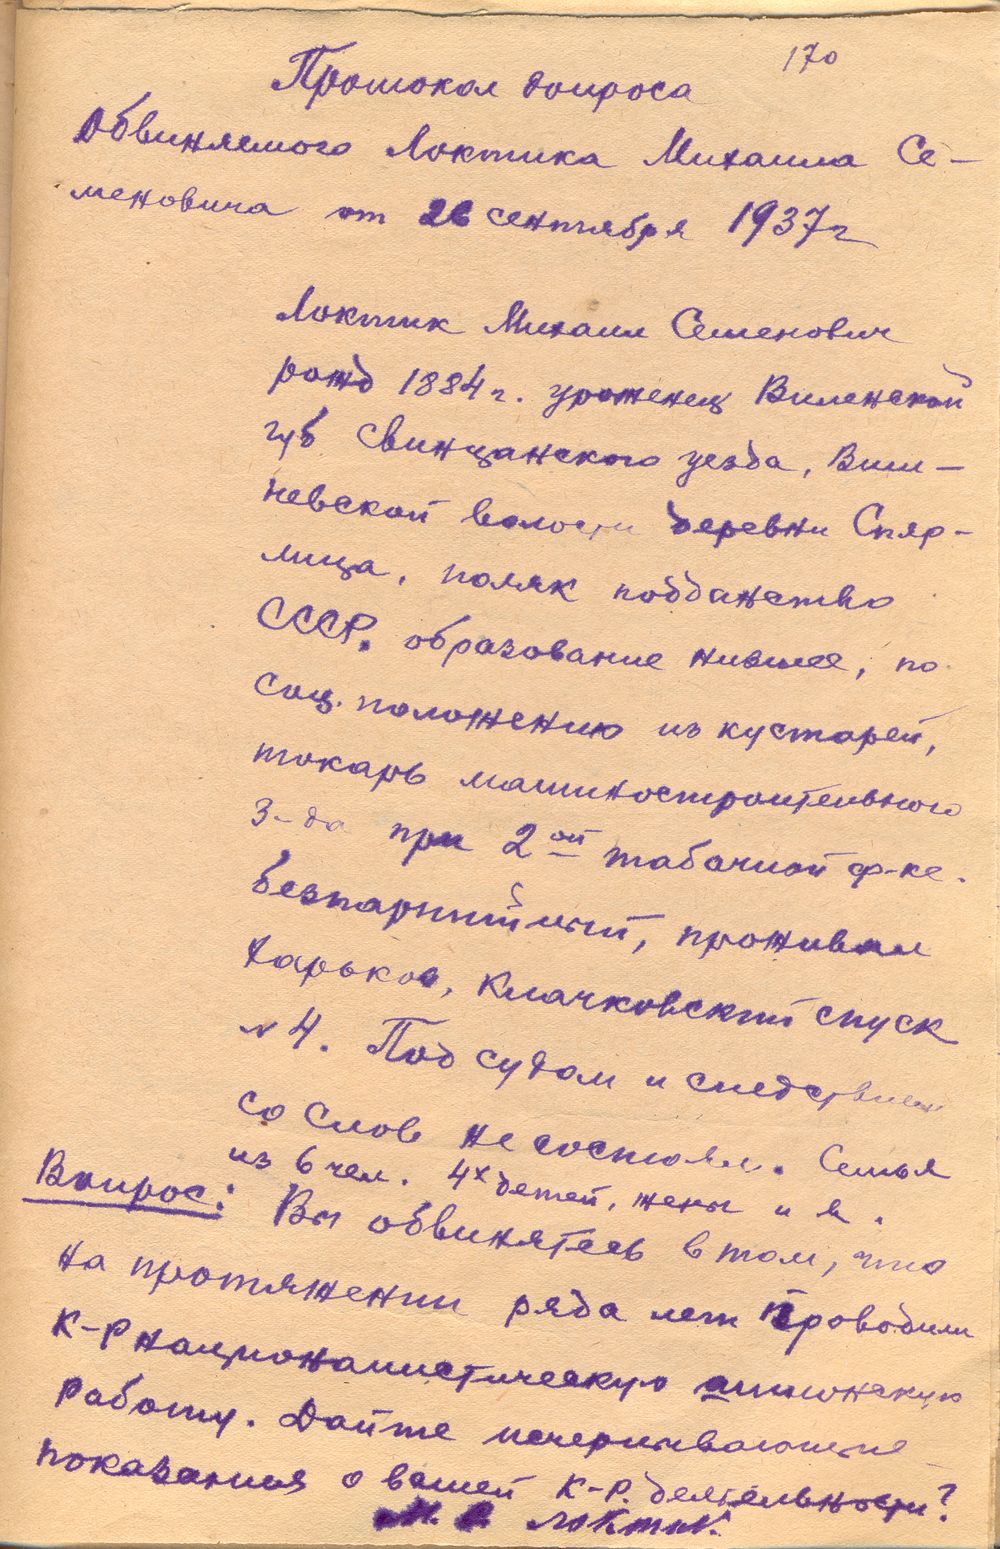 170
Протокол допроса
Обвиняемого Локтика Михаила Се-
меновича от 26 сентября 1937 г
Локтик Михаил Семенович
рожд 1884 г. уроженец Виленской
губ Свинцанского уезда, Виш-
невской волости деревни Спяр-
лица, поляк подданство
СССР. образование низшее, по
соц. положению из кустарей,
токарь машиностроительного
з-да при 2ой табачной ф-ке.
безпартийный, проживал
Харьков, Клачковский спуск
№ 4. Под судом и следствием
со слов не состоял. Семья
из 6 чел. 4х детей, жены и я.
Вопрос: Вы обвиняетесь в том, что
на протяжении ряда лет проводили
к-р националистическую шпионскую
работу. Дайте исчерпывающие
показания о вашей к-р. деятельности?
М. С. Локтик.